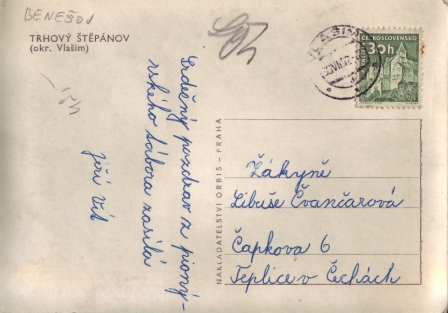 BENEŠOV
TRHOVÝ ŠTĚPÁNOV
(okr. Vlašim)
Srdečný pozdrav z pioný-
rského tábora zasílá
Jiří
NAKLADATELSTVÍ ORBIS - PRAHA
ČESKOSLOVENSKO
30h
Žákyně
Libuše Čvančarová
Čapkova 6
Teplice v Čechách